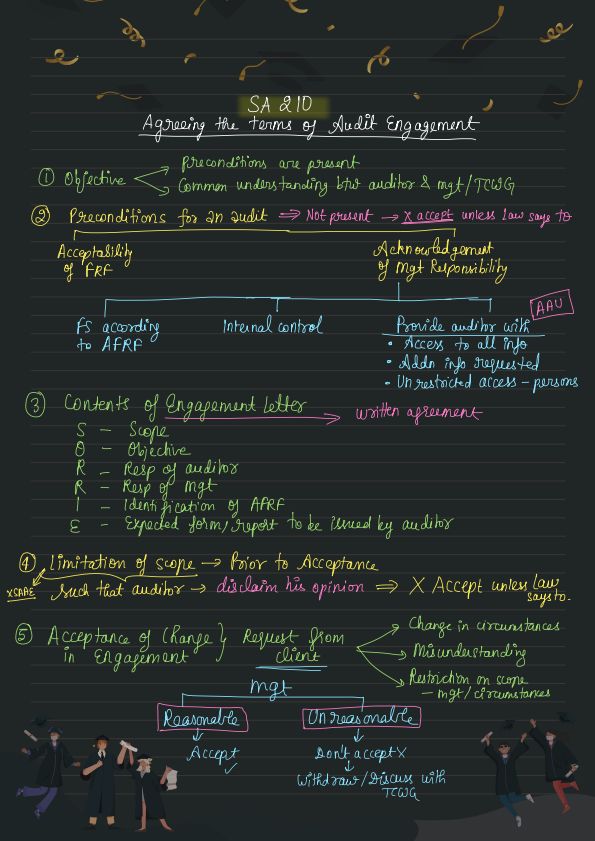 SA 210
Agreeing the terms of Audit Engagement
① Objective
Preconditions are present
Common understanding btw auditor & mgt/TCWG
② Preconditions for an audit ⇒ Not present → X accept unless law says to
Acceptability of FRF
Acknowledgement of Mgt Responsibility
FS according to AFRF
Internal control
Provide auditor with
AAU
• Access to all info
• Addn info requested
• Unrestricted access - persons
③ Contents of Engagement Letter → written agreement
S - Scope
O - Objective
R - Resp of auditor
R - Resp of Mgt
I - Identification of AFRF
E - Expected form/report to be issued by auditor
④ Limitation of scope → Prior to Acceptance
such that auditor → disclaim his opinion ⇒ X Accept unless law says to.
⑤ Acceptance of Change in Engagement } Request from client
Change in circumstances
Misunderstanding
Restriction on scope
- mgt/circumstances
Mgt
Reasonable
Unreasonable
Accept ✓
Don't accept X
Withdraw/Discuss with TCWG